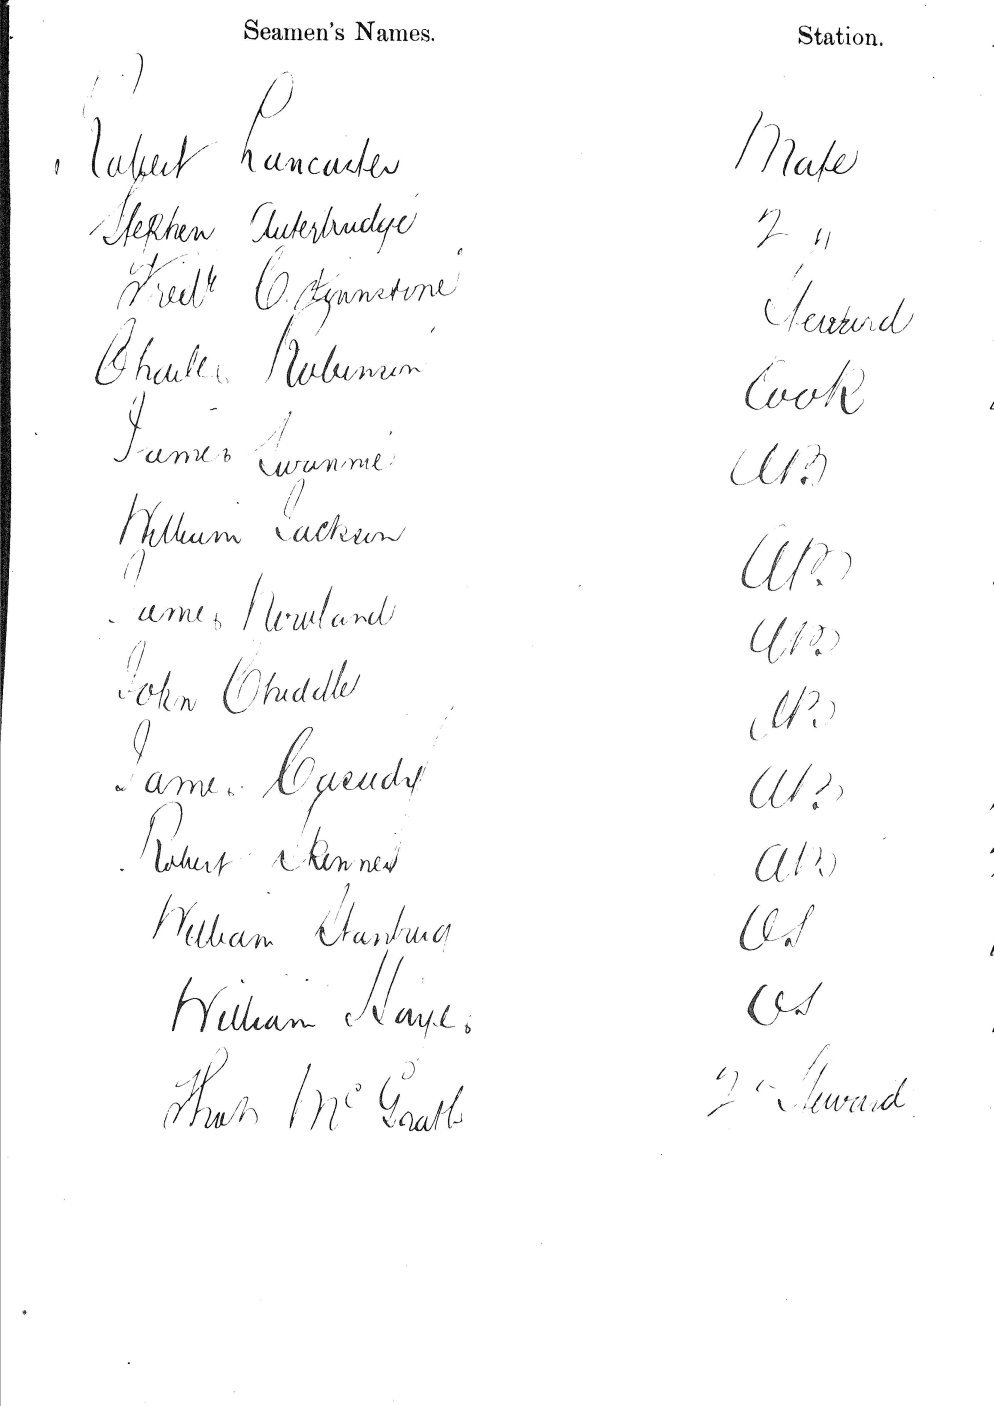 Seamen's Names. Station.
Robert Lancaster Mate
Stephen Outerbridge 2 "
Fredk C. Steward
Charles Robinson Cook
James Swannie AB
William Jackson AB
James Rowland AB
John Chiddle AB
James AB
Robert Skenned AB
William OS
William Hayes OS
Thos McGrath 2d Steward